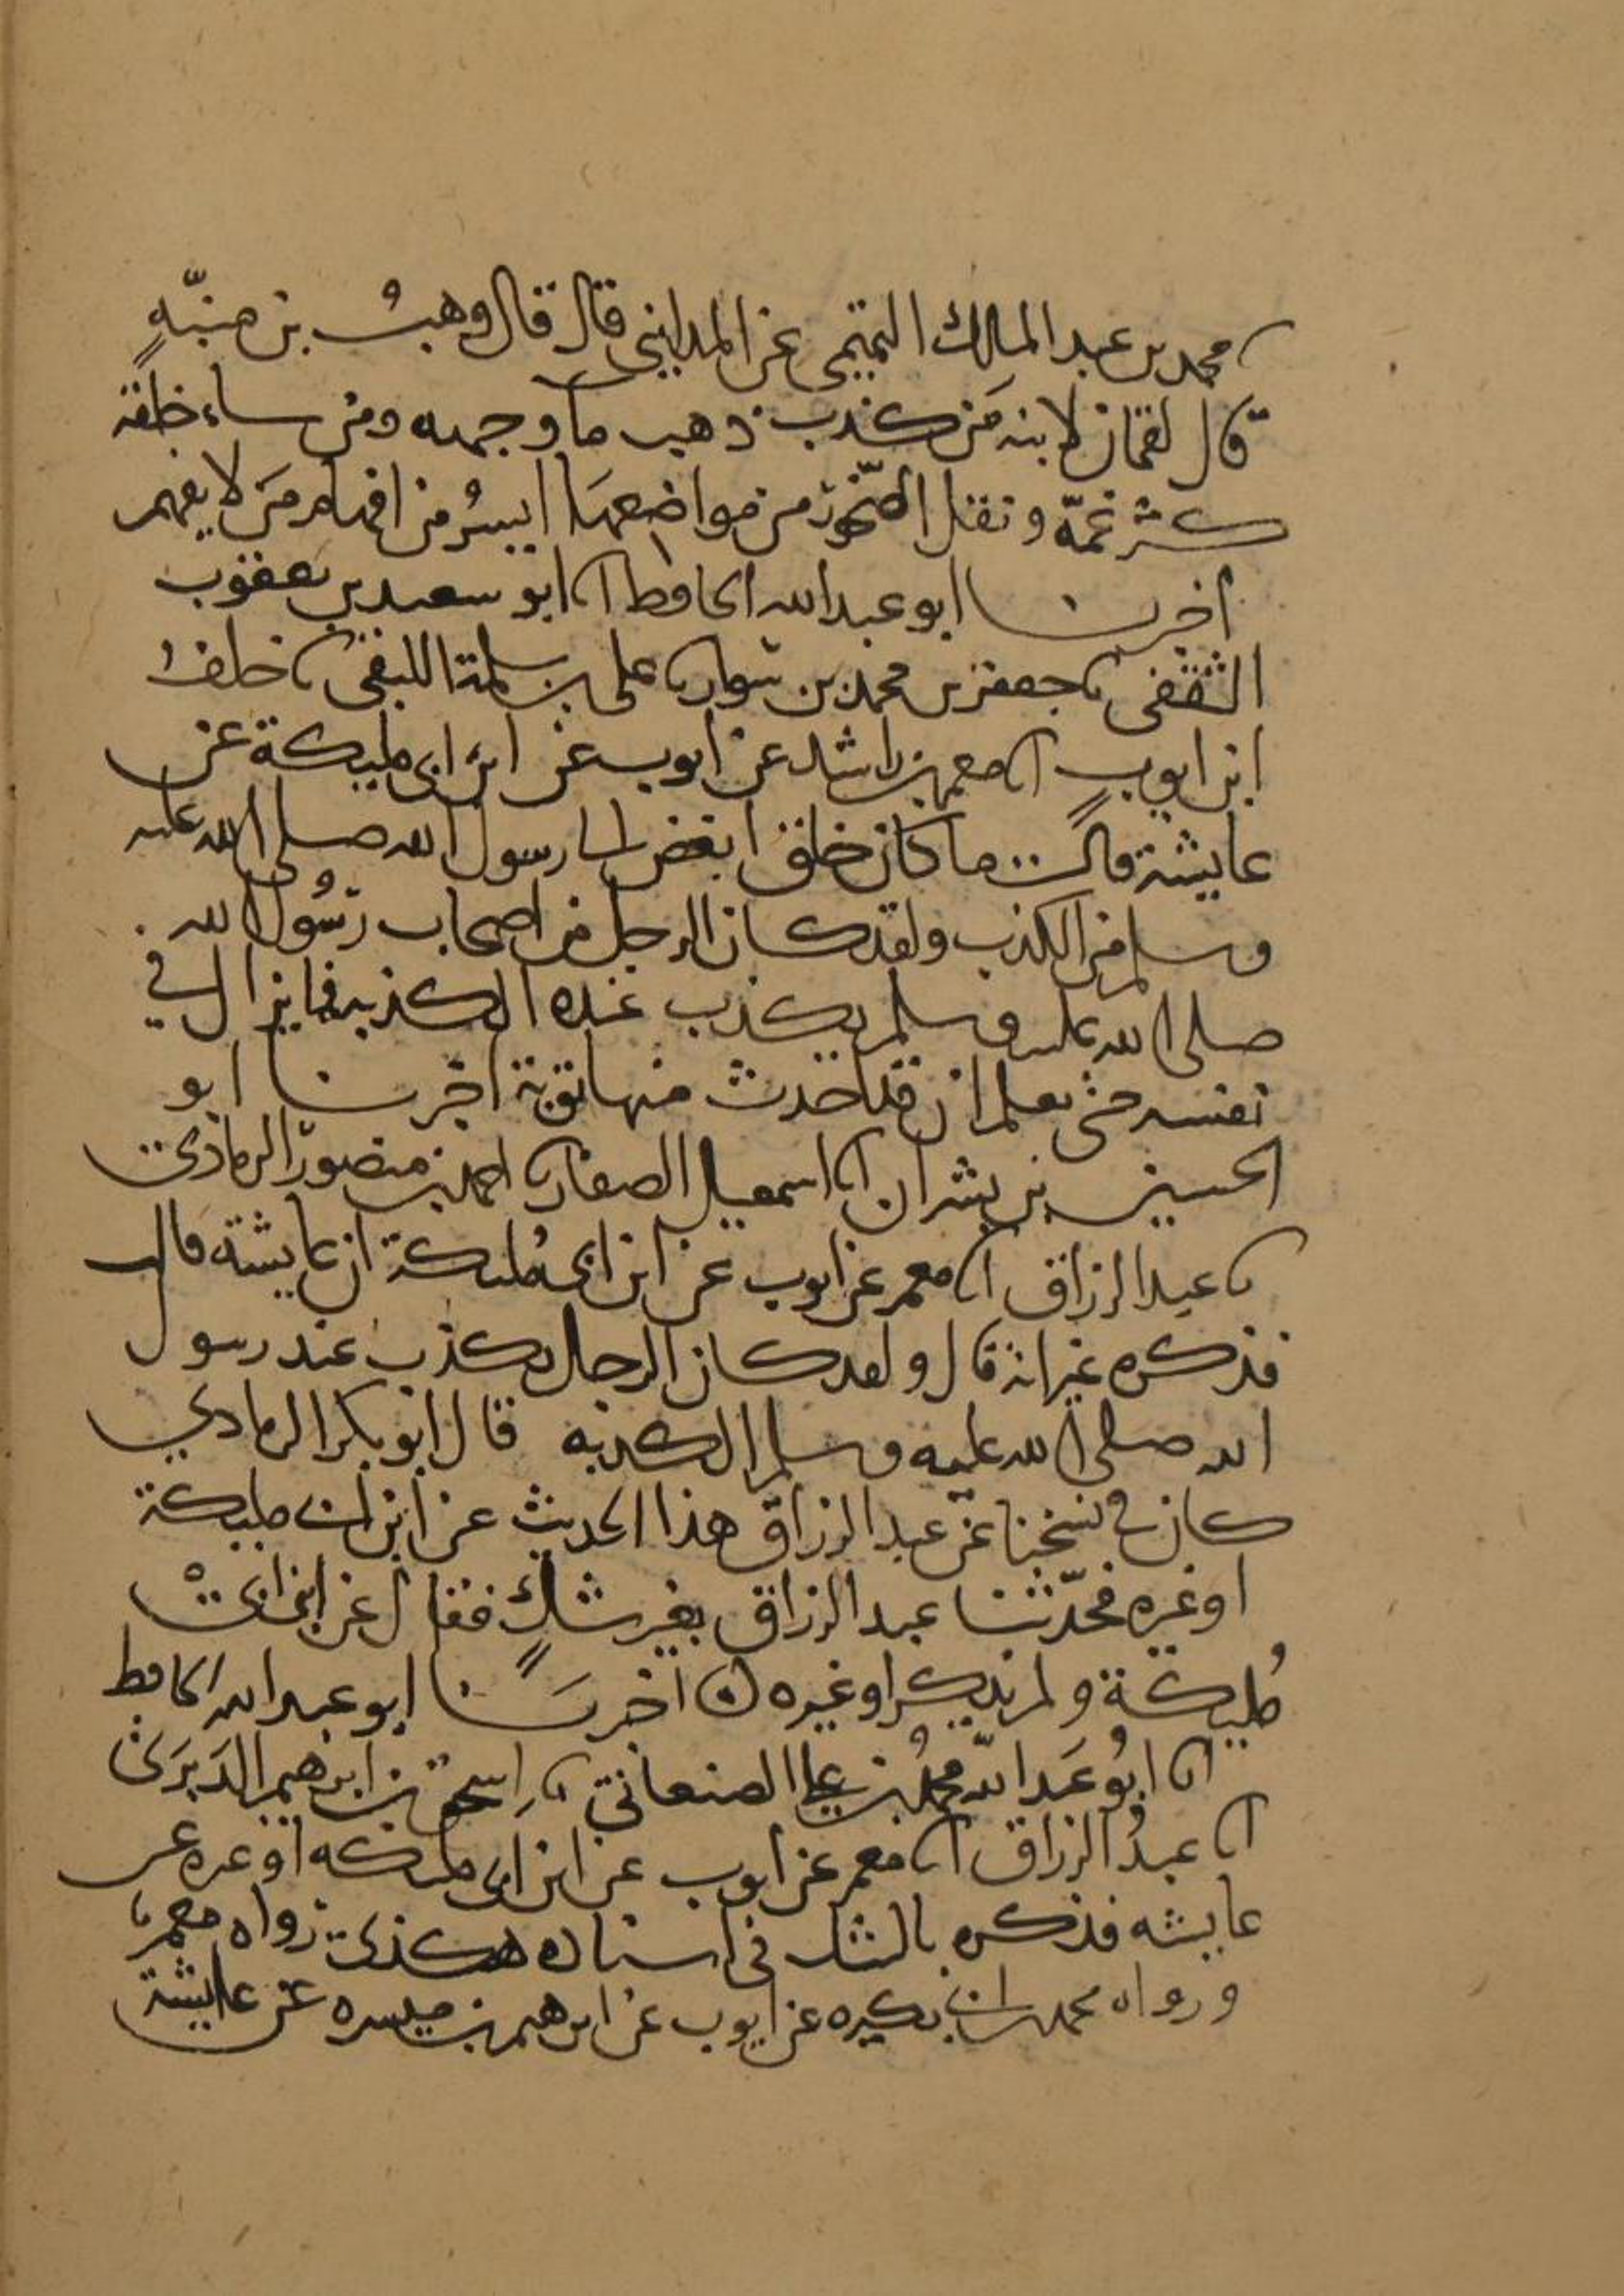 نا محمد بن عبد الملك التميمي عن المدايني قال قال وهب بن منبه
قال لقمان لابنه من كذب ذهب ماء وجهه ومن ساء خلقه
كثر غمه ونقل الصخور من مواضعها ايسر من افهام من لا يفهم
اخبرنا ابو عبد الله الحافظ انا ابو سعيد بن يعقوب
الثقفي نا جعفر بن محمد بن سوار نا علي بن سلمة اللبقي نا خلف
ابن ايوب انا معمر بن راشد عن ايوب عن ابن ابي مليكة عن
عايشة قالت ما كان خلق ابغض الى رسول الله صلى الله عليه
وسلم من الكذب ولقد كان الرجل من اصحاب رسول الله
صلى الله عليه وسلم يكذب عنده الكذبه فما يزال في
نفسه حتى يعلم ان قد احدث منها توبة اخبرنا ابو
الحسين بن بشران انا اسمعيل الصفار نا احمد بن منصور الرمادي
نا عبد الرزاق انا معمر عن ايوب عن ابن ابي مليكة ان عايشة قالت
فذكره غير انه قال ولقد كان الرجل يكذب عند رسول
الله صلى الله عليه وسلم الكذبه قال ابو بكر الرمادي
كان في نسختنا عن عبد الرزاق هذا الحديث عن ابن ابي مليكة
او غيره فحدثنا عبد الرزاق بغير شك فقال عن ابن ابي
مليكة ولم يذكر او غيره اخبرنا ابو عبد الله الحافظ
انا ابو عبد الله محمد بن علي الصنعاني نا اسحق بن ابرهيم الدبري
انا عبد الرزاق انا معمر عن ايوب عن ابن ابي مليكه او غيره عن
عايشه فذكره بالشك في اسناده هكذى رواه معمر
ورواه محمد بن ابي بكيره عن ايوب عن ابرهيم بن ميسره عن عايشة